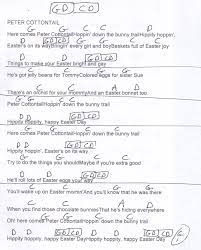 G D C D
PETER COTTONTAIL
G G C C D
Here comes Peter CottontailHoppin' down the bunny trailHippity hoppin',
D G G D C D
Easter's on its wayBringin' every girl and boyBaskets full of Easter joy
D D G D C D
Things to make your Easter bright and gay
G G C C
He's got jelly beans for TommyColored eggs for sister Sue
D D G G
There's an orchid for your mommyAnd an Easter bonnet too
G G C C
Peter CottontailHoppin' down the bunny trail
D D G D C D
Hippity hoppity, happy Easter Day
G G C C
Here comes Peter CottontailHoppin' down the bunny trail
D D G D C D
Hippity hoppin', Easter's on its way
G G C C
Try to do the things you shouldMaybe if you're extra good
D D G D C D
He'll roll lots of Easter eggs your way
C C G G
You'll wake up on Easter mornin'And you'll know that he was there
When you find those chocolate bunniesThat he's hiding everywhere
G G C C
Oh! here comes Peter CottontailHoppin' down the bunny trail
D D G D C D
Hippity hoppity, happy Easter DayHippity hoppity, happy Easter Day